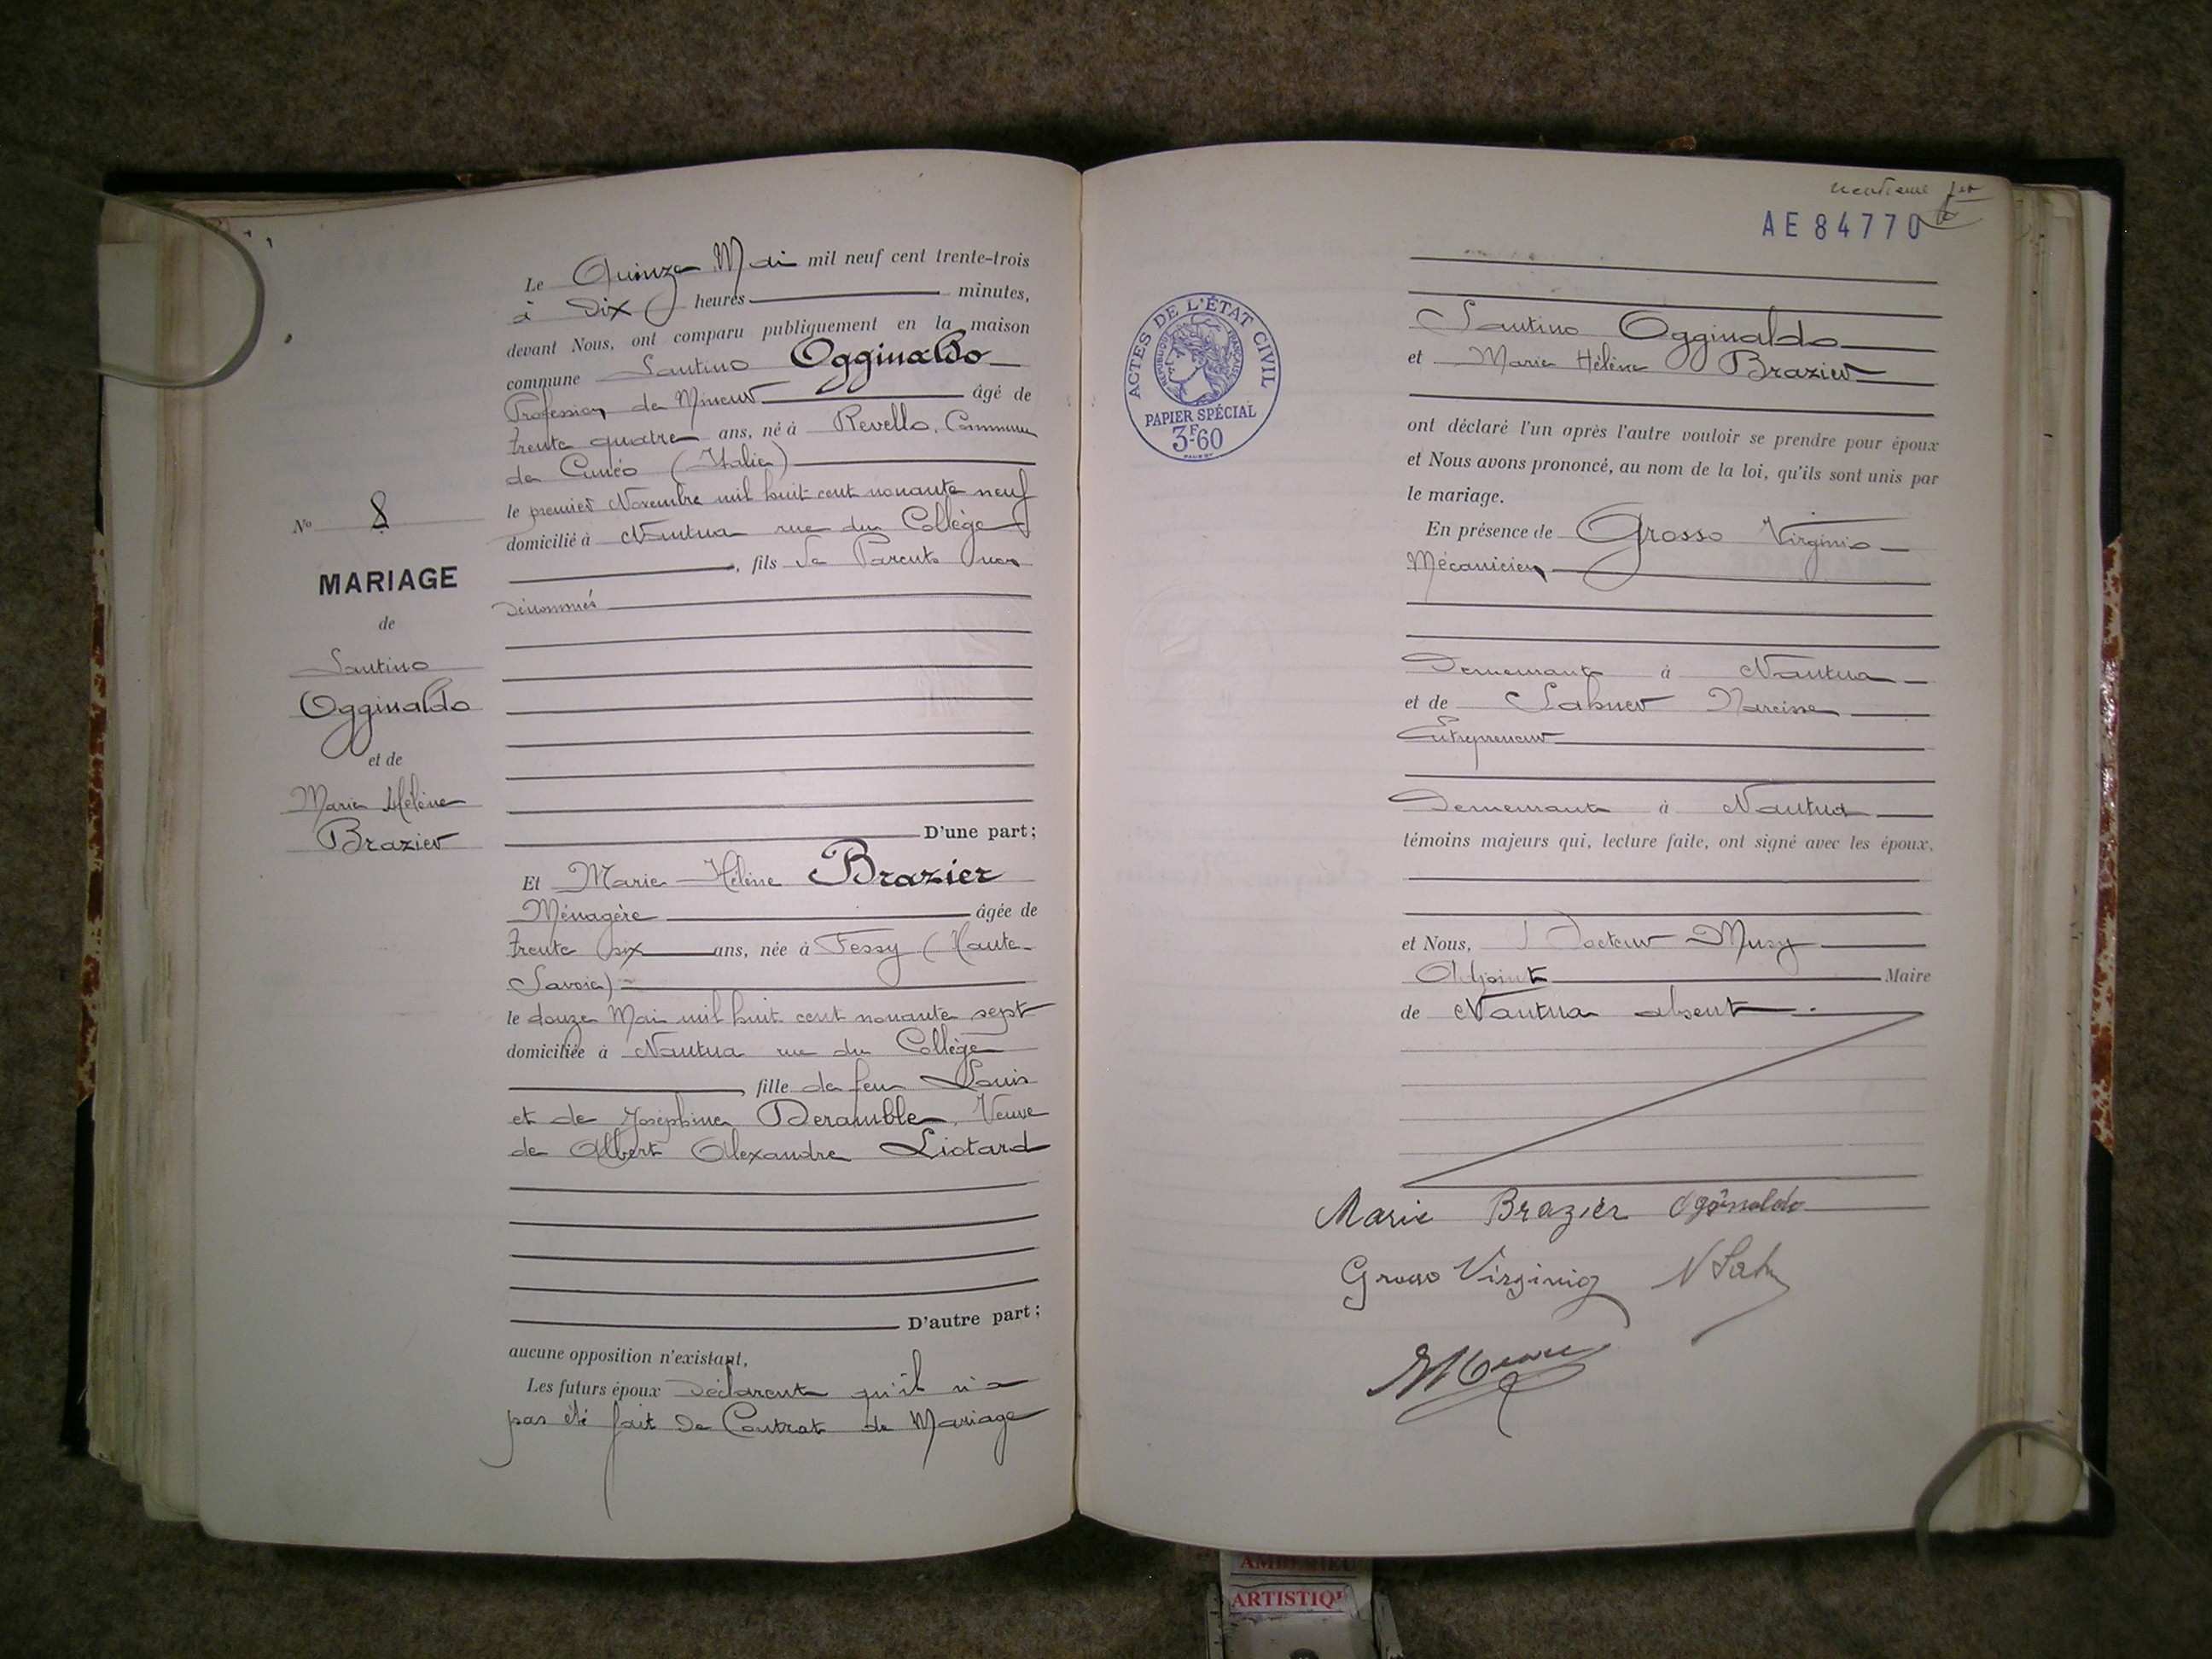 Le Quinze Mai mil neuf cent trente-trois
à Dix heures minutes,
devant Nous, ont comparu publiquement en la maison
commune Santino Ogginaldo
Profession de Mineur âgé de
trente quatre ans, né à Revello, Commune
de Cunéo (Italie)
le premier Novembre mil huit cent nonante neuf
domicilié à Nantua rue du Collège
, fils de Parents non
dénommés
D'une part;
Et Marie Hélène Brazier
Ménagère âgée de
trente six ans, née à Fessy (Haute-
Savoie)
le douze Mai mil huit cent nonante sept
domiciliée à Nantua rue du Collège
, fille de feu Louis
et de Joséphine Deramble, Veuve
de Albert Alexandre Liotard
D'autre part;
aucune opposition n'existant,
Les futurs époux déclarent qu'il n'a
pas été fait de Contrat de Mariage
No 8
MARIAGE
de
Santino
Ogginaldo
et de
Marie Hélène
Brazier
AE 84770
ACTES DE L'ÉTAT CIVIL
RÉPUBLIQUE FRANÇAISE
PAPIER SPÉCIAL
3F60
Santino Ogginaldo
et Marie Hélène Brazier
ont déclaré l'un après l'autre vouloir se prendre pour époux
et Nous avons prononcé, au nom de la loi, qu'ils sont unis par
le mariage.
En présence de Grosso Virginio
Mécanicien
Demeurant à Nantua
et de Narcisse
Entrepreneur
Demeurant à Nantua
témoins majeurs qui, lecture faite, ont signé avec les époux,
et Nous, Docteur Musy
Adjoint Maire
de Nantua absent.
Marie Brazier Ogginaldo
Grosso Virginio
AMBÉRIEU
ARTISTIQU